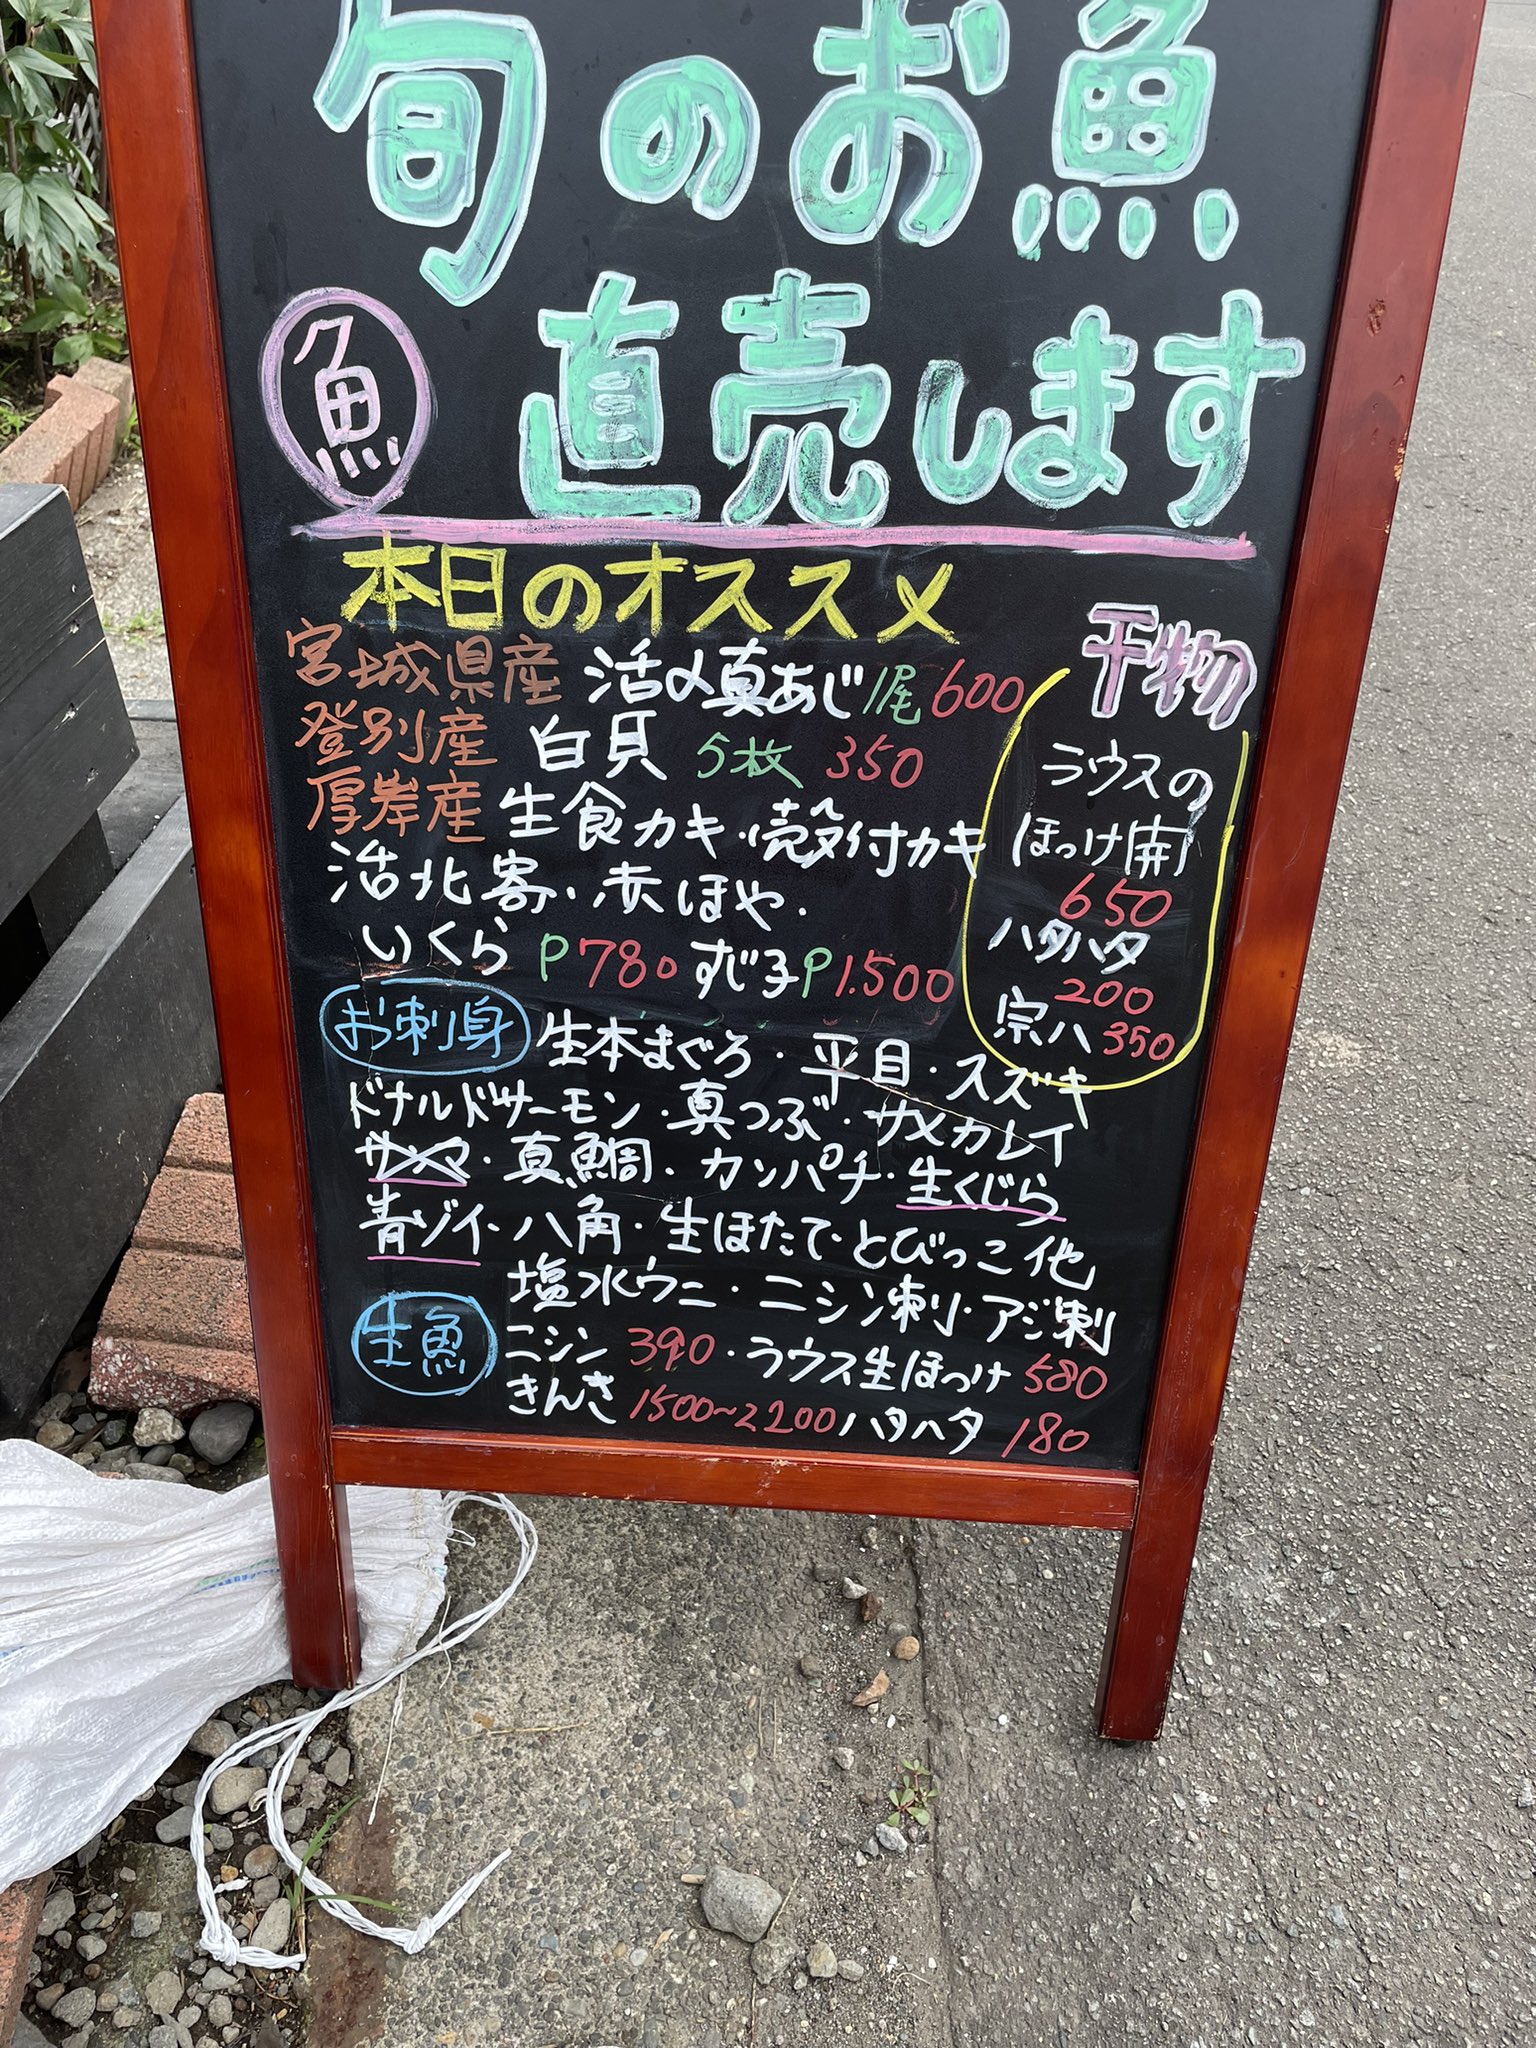 旬のお魚
魚 直売します
本日のオススメ
宮城県産 活〆真あじ 1尾 600
登別産 白貝 5枚 350
厚岸産 生食カキ・殻付カキ
活北寄・赤ほや・
いくら P780 すじ子 P1.500
干物
ラウスの
ほっけ開
650
ハタハタ
200
宗八 350
お刺身 生本まぐろ・平目・スズキ
ドナルドサーモン・真つぶ・ナメタカレイ
サンマ・真鯛・カンパチ・生くじら
青ゾイ・八角・生ほたて・とびっこ他
塩水ウニ・ニシン刺・アジ刺
生魚 ニシン 390・ラウス生ほっけ 580
きんき 1500~2200 ハタハタ 180